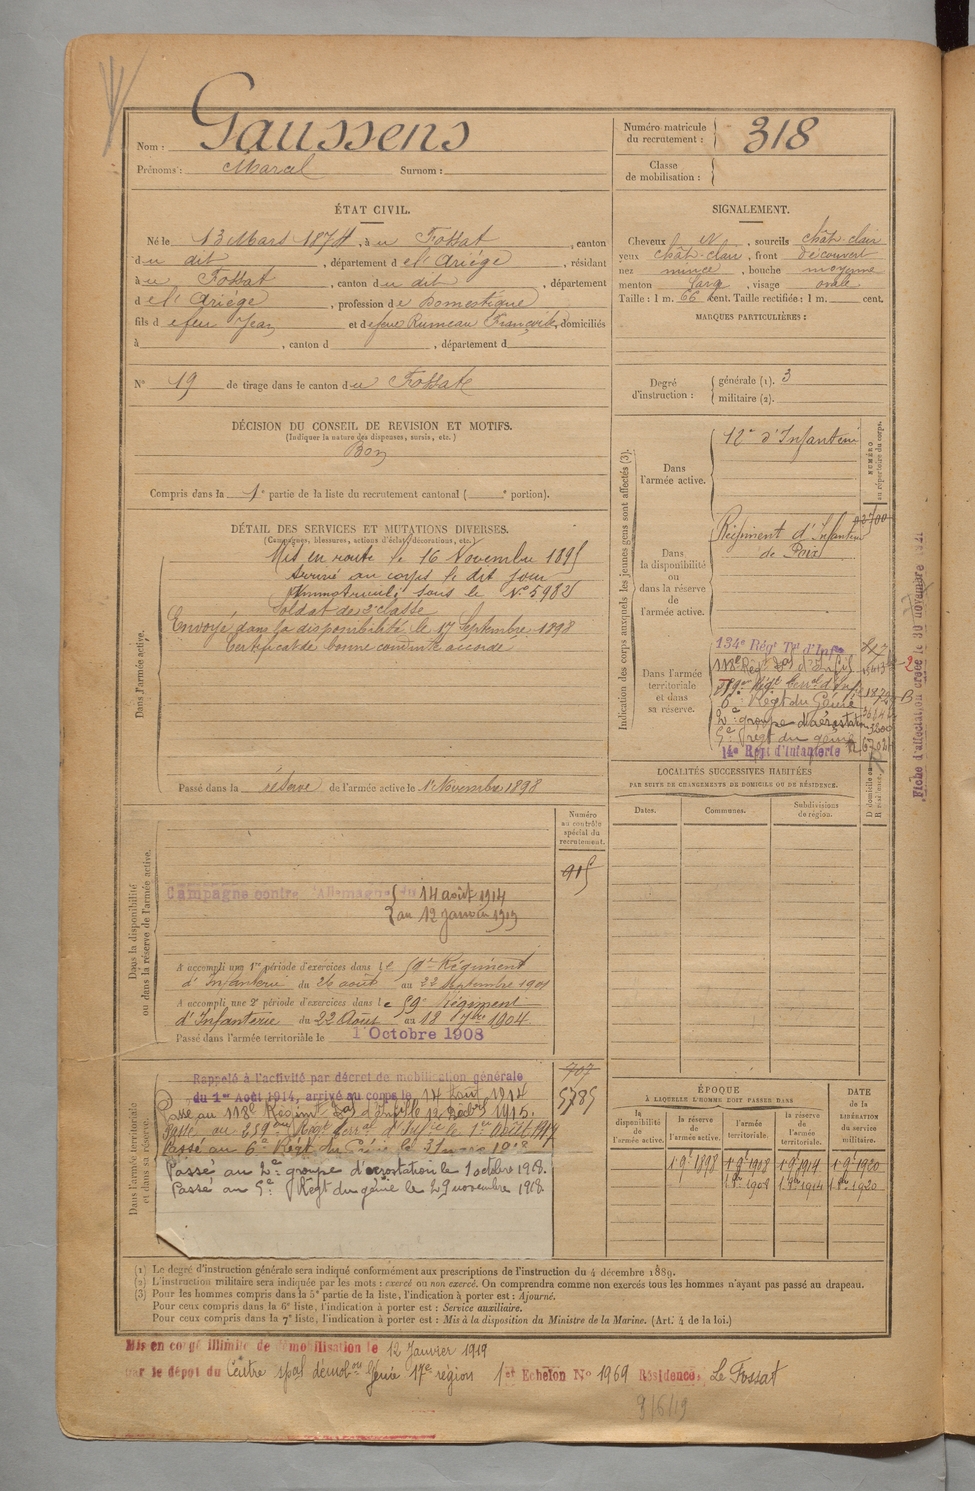 Nom : Gaussens
Prénoms : Marcel Surnom :
Numéro matricule du recrutement : 318
Classe de mobilisation :
ÉTAT CIVIL.
Né le 13 Mars 1874, à u Fossat, canton
d u dit, département d e l'Ariège, résidant
à u Fossat, canton d u dit, département
d e l'Ariège, profession d e Domestique
fils d e feu Jean et d e feue Rumeau Françoise, domiciliés
à , canton d , département d
N° 19 de tirage dans le canton d u Fossat
SIGNALEMENT.
Cheveux N, sourcils chât-clair
yeux chât-clair, front découvert
nez mince, bouche moyenne
menton large, visage ovale
Taille : 1 m. 66 cent. Taille rectifiée : 1 m. cent.
MARQUES PARTICULIÈRES :
Degré d'instruction : générale (1). 3
militaire (2).
DÉCISION DU CONSEIL DE REVISION ET MOTIFS.
(Indiquer la nature des dispenses, sursis, etc.)
Bon
Compris dans la 1e partie de la liste du recrutement cantonal ( e portion).
DÉTAIL DES SERVICES ET MUTATIONS DIVERSES.
(Campagnes, blessures, actions d'éclat, décorations, etc.)
Dans l'armée active.
Mis en route le 16 Novembre 1895
Arrivé au corps le dit jour
Immatriculé sous le N° 5982
Soldat de 2e classe
Envoyé dans la disponibilité le 17 Septembre 1898
Certificat de bonne conduite accordé
Passé dans la réserve de l'armée active le 1er Novembre 1898
Indication des corps auxquels les jeunes gens sont affectés (3).
NUMÉRO au répertoire du corps.
Dans l'armée active.
12e d'Infanterie
Dans la disponibilité ou dans la réserve de l'armée active.
Régiment d'Infanterie
de Foix
Dans l'armée territoriale et dans sa réserve.
134e Régt Tal d'Infie
118e Régt Tal d'Infie
6e Régt du Génie
2e groupe d'aérostation
5e régt du génie
14e Régt d'Infanterie
Fiche d'affectation créée le 30 novembre 1921
LOCALITÉS SUCCESSIVES HABITÉES
PAR SUITE DE CHANGEMENTS DE DOMICILE OU DE RÉSIDENCE.
Dates. Communes. Subdivisions de région. D domicile ou R résidence.
Dans la disponibilité ou dans la réserve de l'armée active.
Numéro au contrôle spécial du recrutement.
915
Campagne contre l'Allemagne du 14 août 1914
au 12 janvier 1919
A accompli une 1re période d'exercices dans le 59e Régiment
d'Infanterie du 26 août au 22 Septembre 1901
A accompli une 2e période d'exercices dans le 59e Régiment
d'Infanterie du 22 Août au 18 7bre 1904
Passé dans l'armée territoriale le 1 Octobre 1908
Dans l'armée territoriale et dans sa réserve.
707
5785
Rappelé à l'activité par décret de mobilisation générale
du 1er Août 1914, arrivé au corps le 14 Août 1914
Passé au 118e Régiment Tal d'Infie le 12 Xbre 1915.
Passé au 259e Régt terral d'Infie le 1er Août 1917
Passé au 6e Régt du Génie le
Passé au 2e groupe d'aérostation le 1 octobre 1918.
Passé au 5e Régt du génie le 29 novembre 1918.
ÉPOQUE
À LAQUELLE L'HOMME DOIT PASSER DANS
la disponibilité de l'armée active. la réserve de l'armée active. l'armée territoriale. la réserve de l'armée territoriale. DATE de la LIBÉRATION du service militaire.
1 9e 1898 1 9e 1908 1 9e 1914 1 9e 1920
1 8e 1908 1 8e 1914 1 8e 1920
(1) Le degré d'instruction générale sera indiqué conformément aux prescriptions de l'instruction du 4 décembre 1889.
(2) L'instruction militaire sera indiquée par les mots : exercé ou non exercé. On comprendra comme non exercés tous les hommes n'ayant pas passé au drapeau.
(3) Pour les hommes compris dans la 5e partie de la liste, l'indication à porter est : Ajourné.
Pour ceux compris dans la 6e liste, l'indication à porter est : Service auxiliaire.
Pour ceux compris dans la 7e liste, l'indication à porter est : Mis à la disposition du Ministre de la Marine. (Art. 4 de la loi.)
Mis en congé illimité de démobilisation le 12 Janvier 1919
par le dépôt du Centre spal démobon Génie 17e région 1er Echelon N° 1969 Résidence, Le Fossat
9/6/19